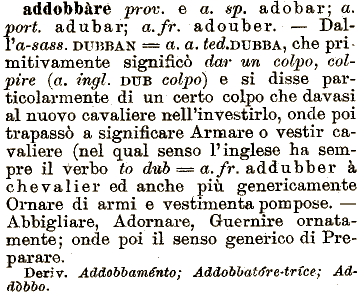 addobbàre prov. e a. sp. adobar; a.
port. adubar; a. fr. adouber. — Dal-
l'a-sass. DUBBAN = a. a. ted. DUBBA, che pri-
mitivamente significò dar un colpo, col-
pire (a. ingl. DUB colpo) e si disse par-
ticolarmente di un certo colpo che davasi
al nuovo cavaliere nell'investirlo, onde poi
trapassò a significare Armare o vestir ca-
valiere (nel qual senso l'inglese ha sem-
pre il verbo to dub = a. fr. addubber à
chevalier ed anche più genericamente
Ornare di armi e vestimenta pompose. —
Abbigliare, Adornare, Guernire ornata-
mente; onde poi il senso generico di Pre-
parare.
Deriv. Addobbaménto; Addobbatóre-tríce; Ad-
dòbbo.